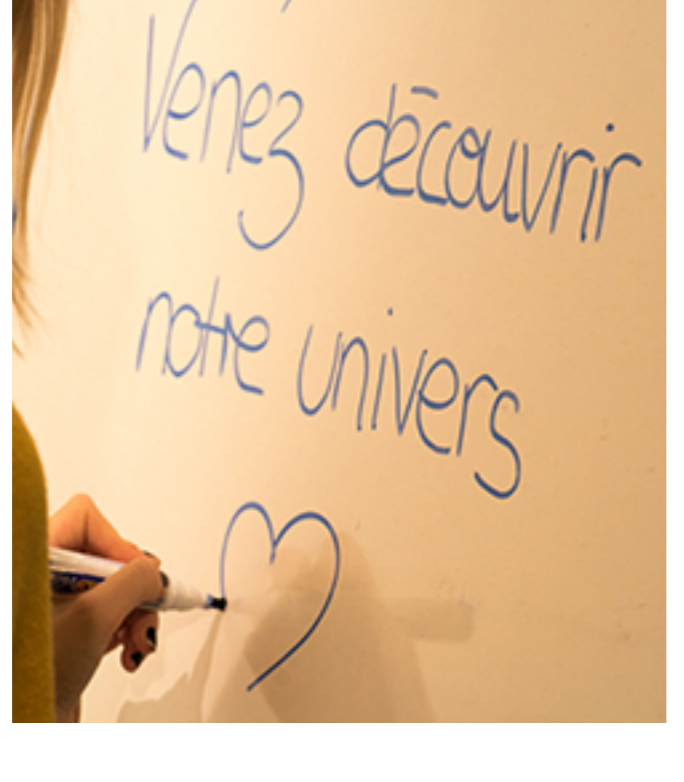 Venez découvrir
notre univers